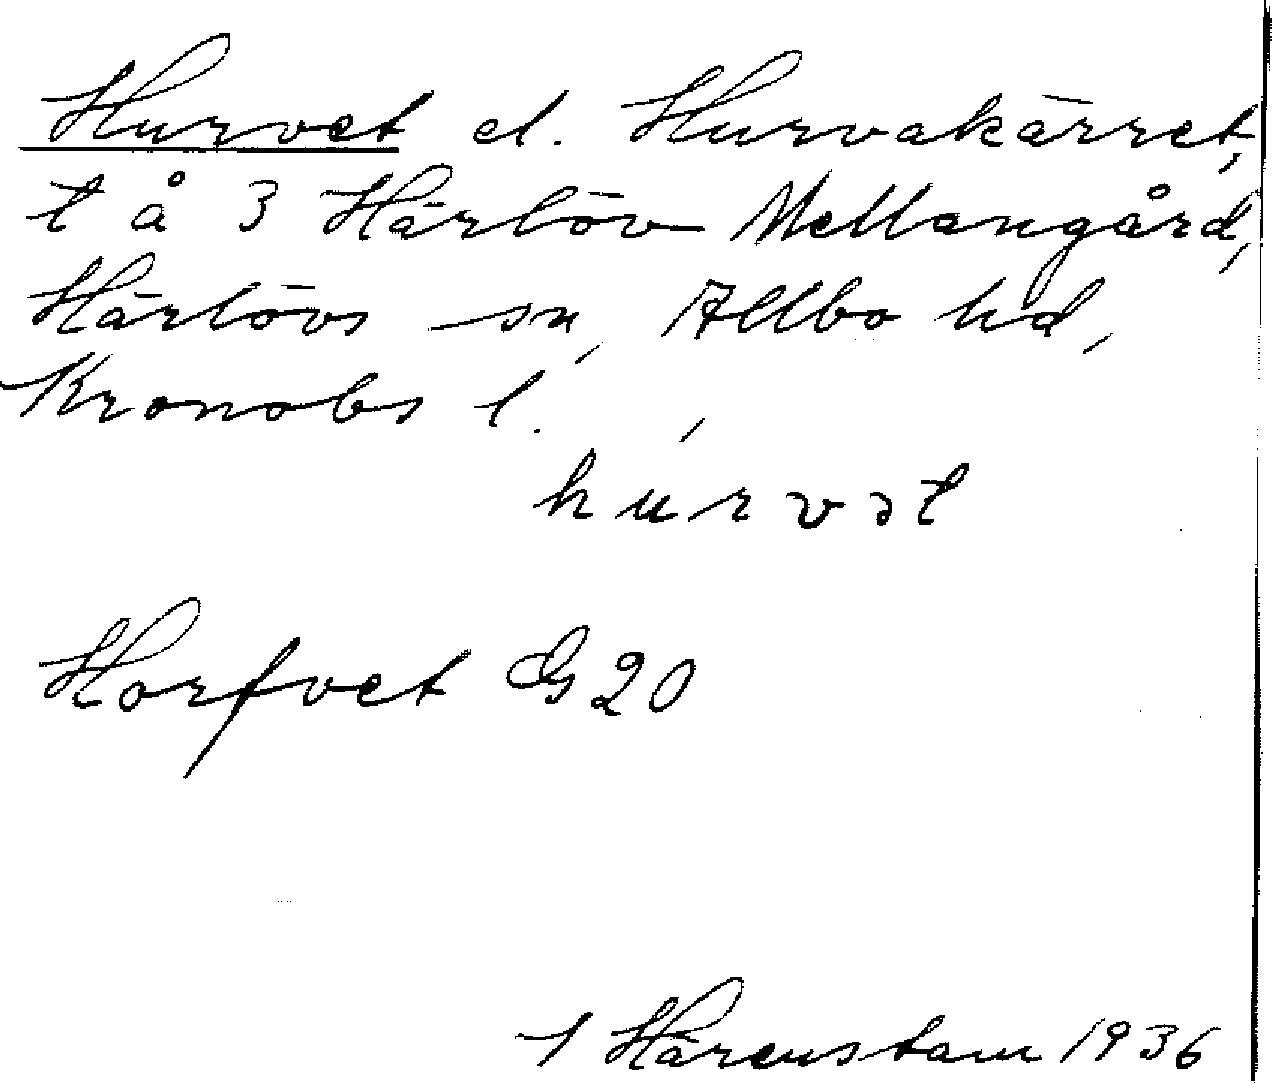 Hurvet el. Hurvakärret,
t å 3 Härlöv Mellangård,
Härlövs sn, Allbo hd,
Kronobs l.
húrvət
Horfvet G 20
1 Härenstam 1936